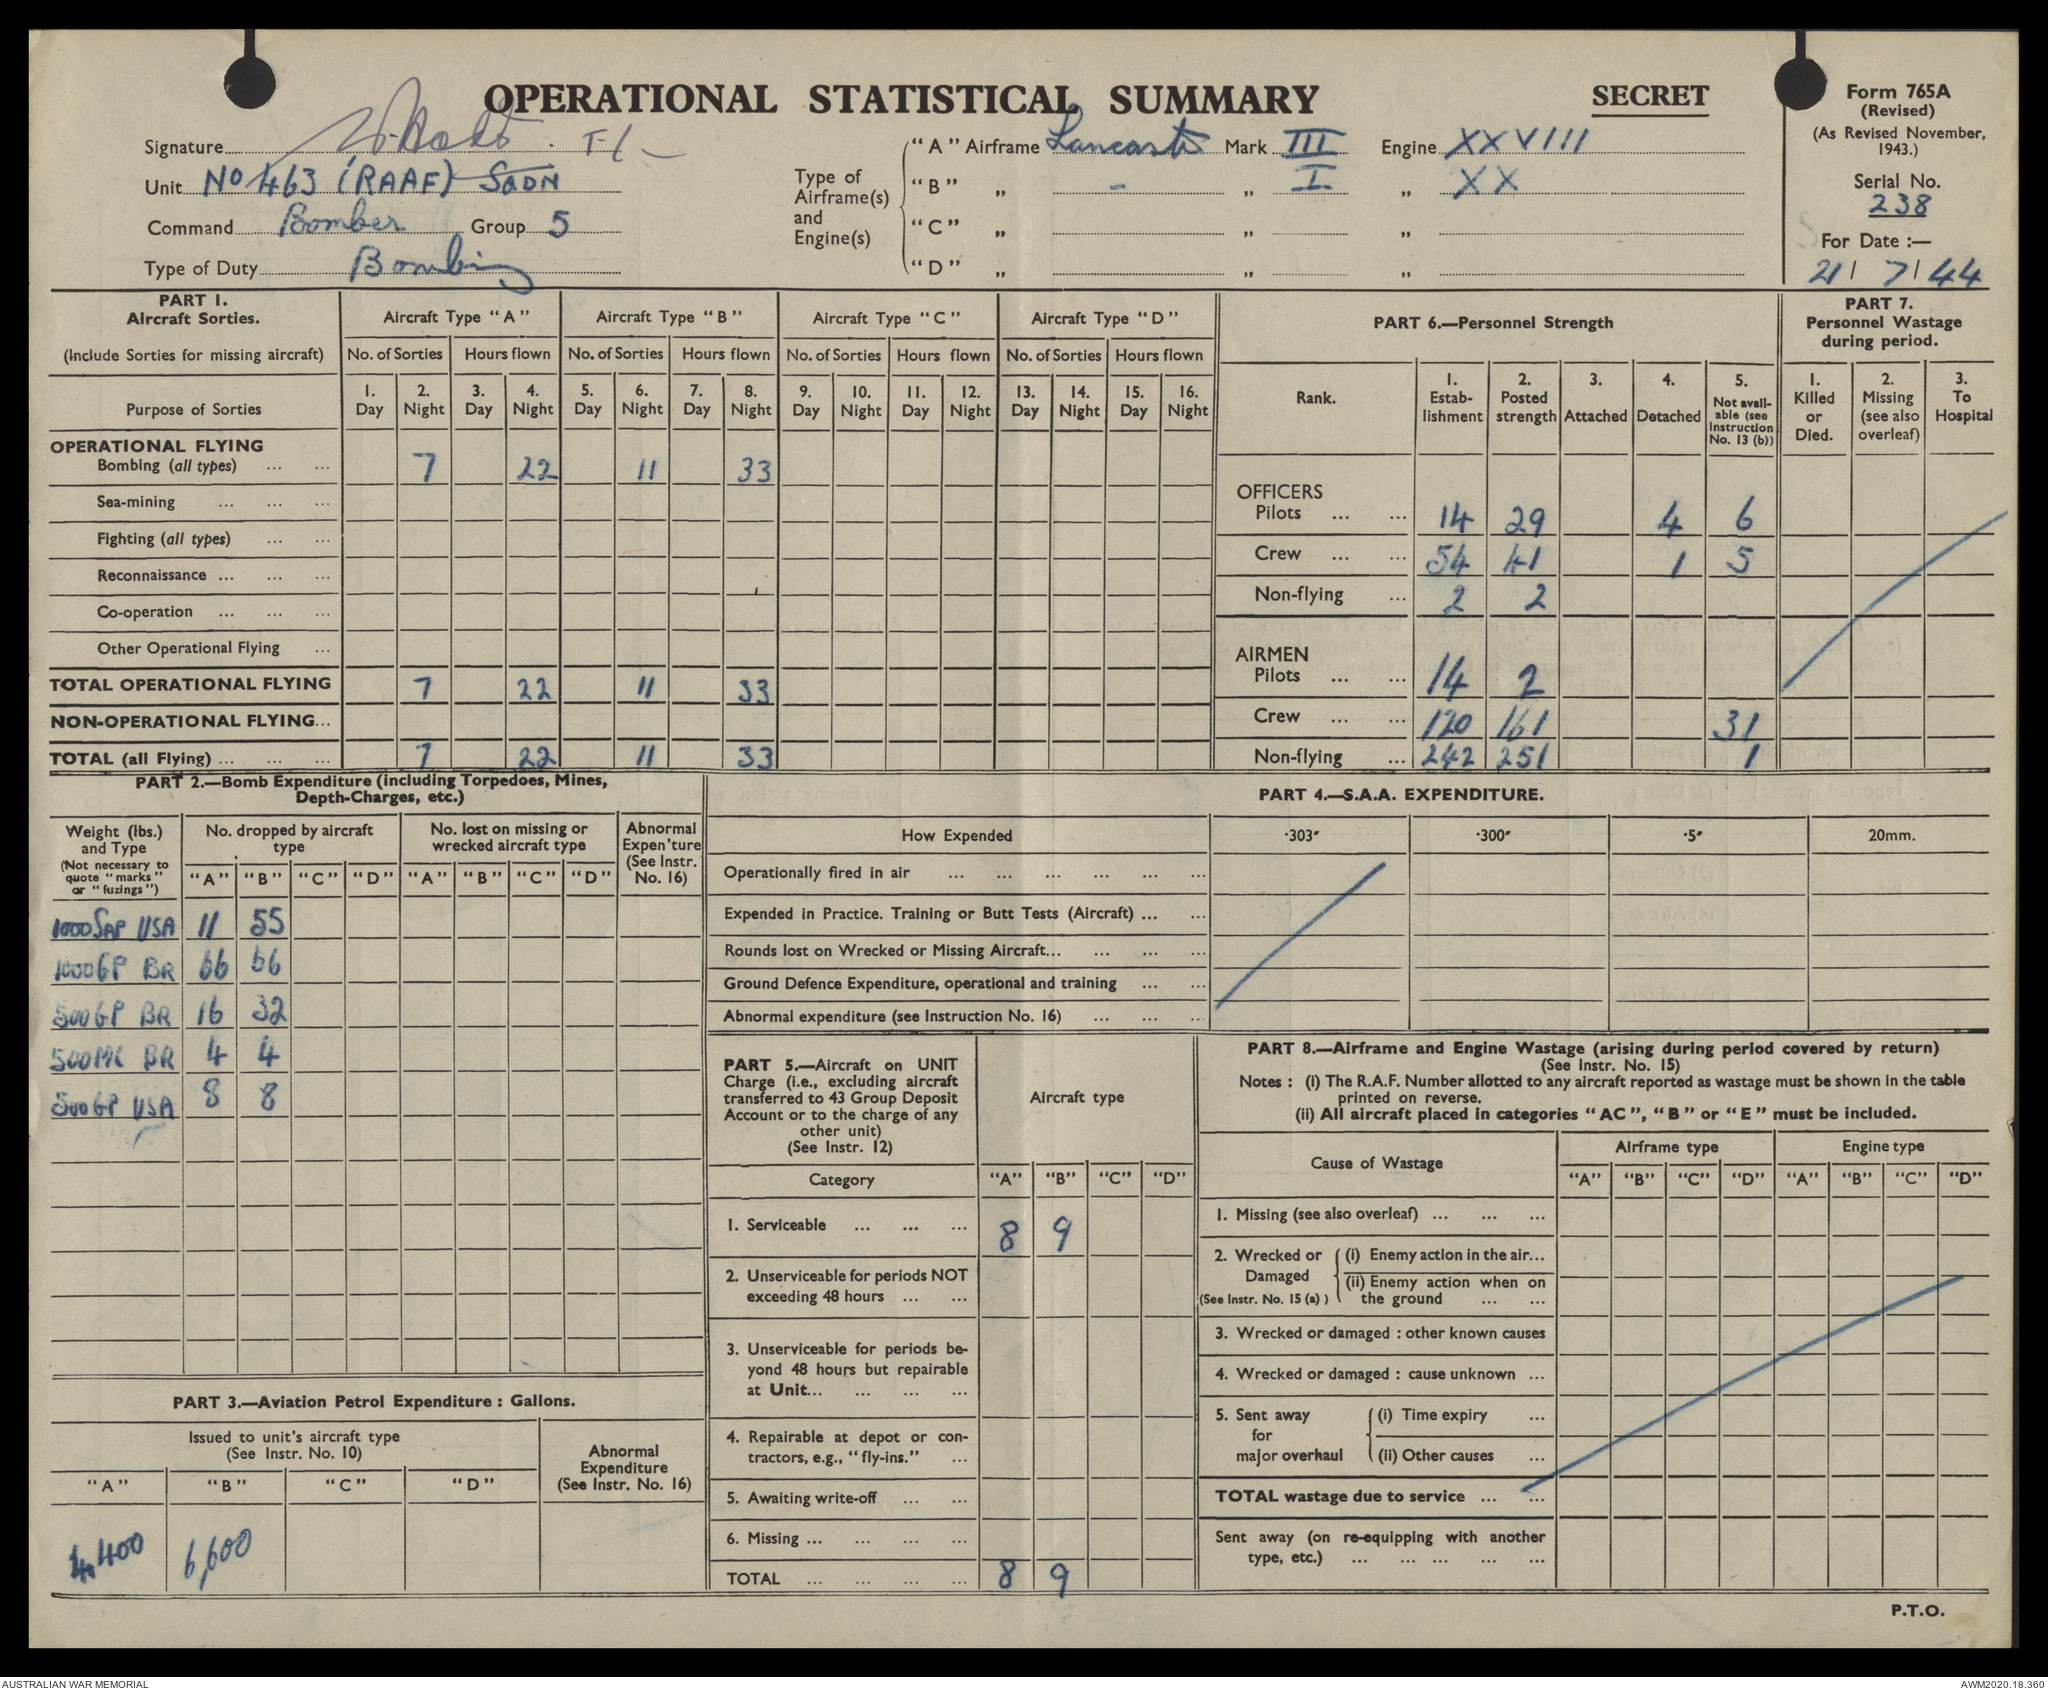 OPERATIONAL STATISTICAL SUMMARY
SECRET
Form 765A
(Revised)
(As Revised November, 1943.)
Serial No.
238
For Date :—
21 / 7 / 44
Signature
Unit No 463 (RAAF) SQDN
Command Bomber Group 5
Type of Duty Bombing
Type of Airframe(s) and Engine(s)
"A" Airframe Lancaster Mark III Engine XXVIII
"B" „ - „ I „ XX
"C" „ „ „
"D" „ „ „
PART 1.
Aircraft Sorties.
(Include Sorties for missing aircraft)
Purpose of Sorties
Aircraft Type "A" Aircraft Type "B" Aircraft Type "C" Aircraft Type "D"
No. of Sorties Hours flown No. of Sorties Hours flown No. of Sorties Hours flown No. of Sorties Hours flown
1. Day 2. Night 3. Day 4. Night 5. Day 6. Night 7. Day 8. Night 9. Day 10. Night 11. Day 12. Night 13. Day 14. Night 15. Day 16. Night
OPERATIONAL FLYING
Bombing (all types) ... ... 7 22 11 33
Sea-mining ... ... ...
Fighting (all types) ... ...
Reconnaissance ... ... ...
Co-operation ... ... ...
Other Operational Flying ...
TOTAL OPERATIONAL FLYING 7 22 11 33
NON-OPERATIONAL FLYING...
TOTAL (all Flying) ... ... ... 7 22 11 33
PART 6.—Personnel Strength
Rank.
1. Establishment
2. Posted strength
3. Attached
4. Detached
5. Not available (see Instruction No. 13 (b))
OFFICERS
Pilots ... ... 14 29 4 6
Crew ... ... 54 41 1 5
Non-flying ... 2 2
AIRMEN
Pilots ... ... 14 2
Crew ... ... 120 161 31
Non-flying ... 242 251 1
PART 7.
Personnel Wastage during period.
1. Killed or Died.
2. Missing (see also overleaf)
3. To Hospital
PART 2.—Bomb Expenditure (including Torpedoes, Mines,
Depth-Charges, etc.)
Weight (lbs.) and Type
(Not necessary to quote "marks" or "fuzings")
No. dropped by aircraft type
No. lost on missing or wrecked aircraft type
Abnormal Expen'ture (See Instr. No. 16)
"A" "B" "C" "D" "A" "B" "C" "D"
1000 SAP USA 11 55
1000 GP BR 66 66
500 GP BR 16 32
500 MC BR 4 4
500 GP USA 8 8
PART 3.—Aviation Petrol Expenditure : Gallons.
Issued to unit's aircraft type
(See Instr. No. 10)
Abnormal Expenditure (See Instr. No. 16)
"A" "B" "C" "D"
4,400 6,600
PART 4.—S.A.A. EXPENDITURE.
How Expended ·303" ·300" ·5" 20mm.
Operationally fired in air ... ... ... ... ... ...
Expended in Practice. Training or Butt Tests (Aircraft) ... ...
Rounds lost on Wrecked or Missing Aircraft... ... ... ...
Ground Defence Expenditure, operational and training ... ...
Abnormal expenditure (see Instruction No. 16) ... ... ...
PART 5.—Aircraft on UNIT
Charge (i.e., excluding aircraft
transferred to 43 Group Deposit
Account or to the charge of any
other unit)
(See Instr. 12)
Aircraft type
Category "A" "B" "C" "D"
1. Serviceable ... ... ... 8 9
2. Unserviceable for periods NOT
exceeding 48 hours ... ...
3. Unserviceable for periods be-
yond 48 hours but repairable
at Unit... ... ... ...
4. Repairable at depot or con-
tractors, e.g., "fly-ins." ...
5. Awaiting write-off ... ...
6. Missing ... ... ... ...
TOTAL ... ... ... ... 8 9
PART 8.—Airframe and Engine Wastage (arising during period covered by return)
(See Instr. No. 15)
Notes : (i) The R.A.F. Number allotted to any aircraft reported as wastage must be shown in the table
printed on reverse.
(ii) All aircraft placed in categories "AC", "B" or "E" must be included.
Cause of Wastage
Airframe type Engine type
"A" "B" "C" "D" "A" "B" "C" "D"
1. Missing (see also overleaf) ... ... ...
2. Wrecked or Damaged (See Instr. No. 15 (a) )
(i) Enemy action in the air...
(ii) Enemy action when on
the ground ... ...
3. Wrecked or damaged : other known causes
4. Wrecked or damaged : cause unknown ...
5. Sent away for major overhaul
(i) Time expiry ...
(ii) Other causes ...
TOTAL wastage due to service ... ...
Sent away (on re-equipping with another
type, etc.) ... ... ... ... ...
P.T.O.
AUSTRALIAN WAR MEMORIAL
AWM2020.18.360